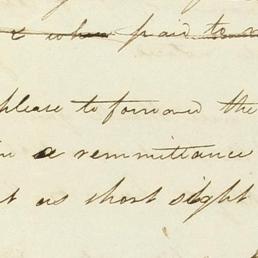 & when paid to
please to forward the
a remmittance
at as short sight